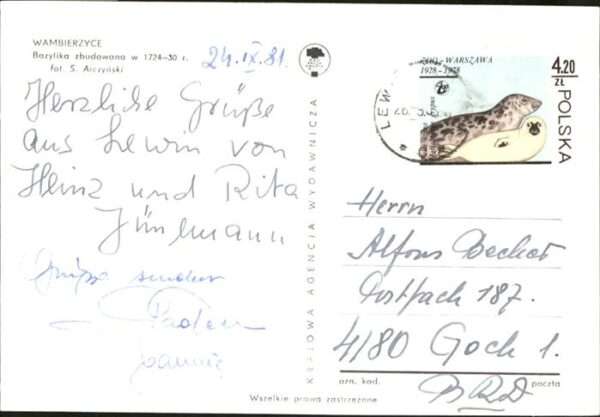 WAMBIERZYCE
Bazylika zbudowana w 1724-30 r.
fot. S. Arczyński
24.IX.81
Herzliche Grüße
aus Lewin von
Heinz und Rita
Grüße senden
KRAJOWA AGENCJA WYDAWNICZA
ZOO - WARSZAWA
1928-1978
4.20
ZŁ
POLSKA
LEW
Herrn
Alfons Bechot
Postfach 187.
4180 Goch 1.
ozn. kod.
poczta
BRD
Wszelkie prawa zastrzeżone